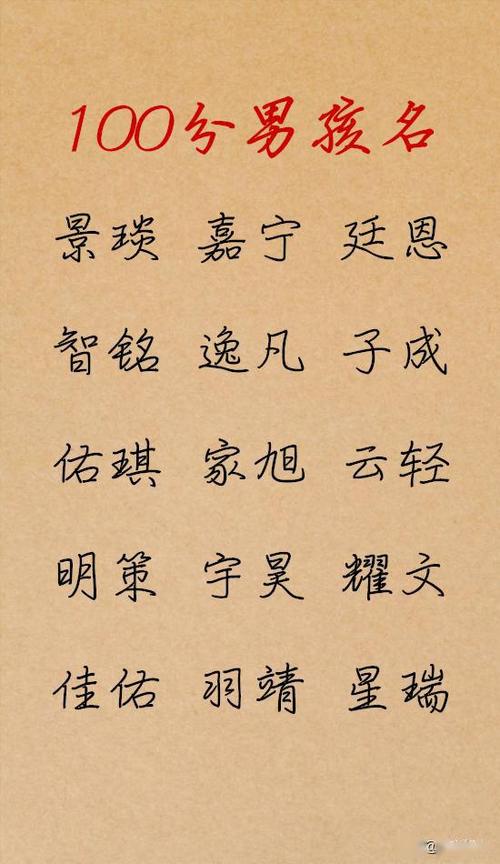 100分男孩名
景琰 嘉宁 廷恩
智铭 逸凡 子成
佑琪 家旭 云轻
明策 宇昊 耀文
佳佑 羽靖 星瑞